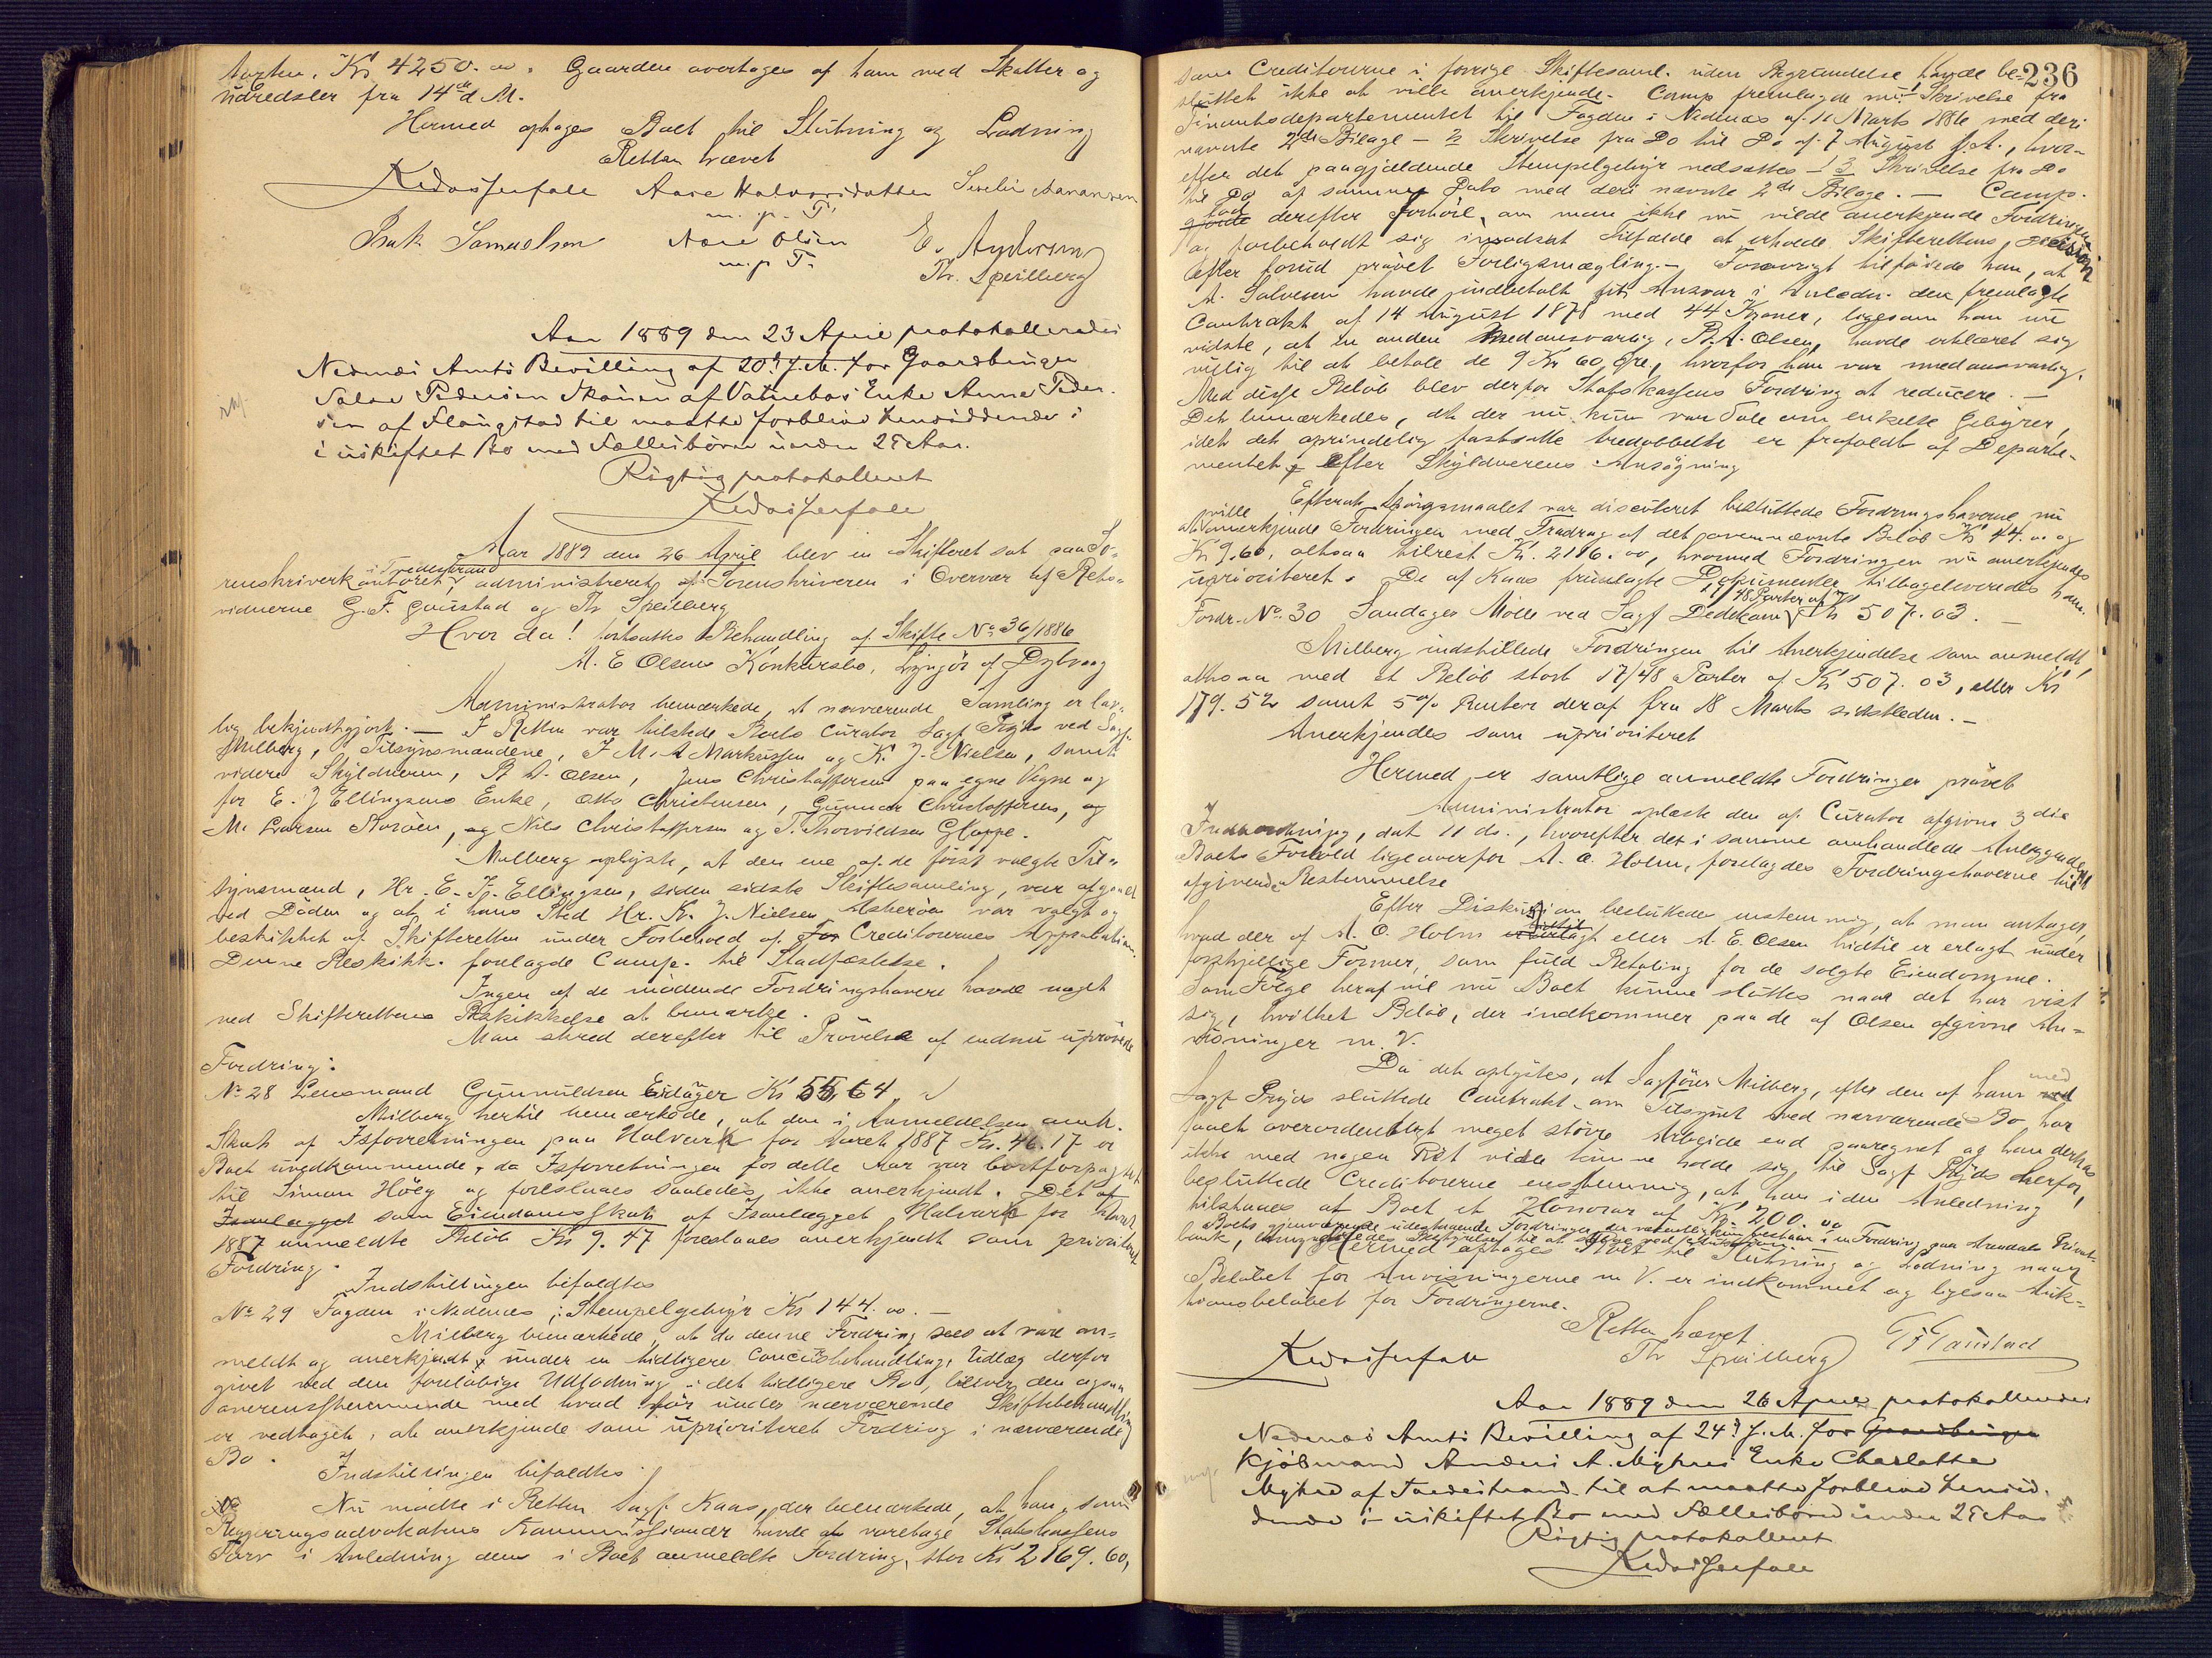 Kr 4250. oo. Gaarden overtages af ham med Skatter og
Udredsler fra 14de d. M.
Hermed optages Boet til Slutning og Lodning
Retten hævet
Aase Halvorsdatter
m. p. P.
Isak Samuelsen Aase Olsen E. Andersen
m. p. P. Th. Speilberg
Aar 1889 den 23 April protokolleredes
Nedenæs Amts Bevilling af 20. d. M. for Gaardbruger
Pedersen af Vatnebos Enke Anne Peder-
sen af Flangstad til maatte forblive hensiddende i
i uskiftet Bo med Fællesbørn under 25 Aar.
Rigtig protokolleret
Aar 1889 den 26 April blev en Skifteret sat paa So-
renskriverkontoret i Tvedestrand, administreret af Sorenskriveren i Overvær af Rets-
vidnerne G. F. Goustad og Th Speilberg
Hvor da! fortsattes Behandling af Skifte No 36/1886
A. E Olsens Konkursbo, Lyngør af Dybvaag
Administrator bemærkede, at nærværende Samling er lov-
lig bekjendtgjort. — I Retten var tilstede Boets Curator Sagf. Prydz ved Sagf.
Milberg, Tilsynsmændene, J M. A Markussen og K. J. Nielsen, samt
videre Skyldneren, B A. Olsen, Jens Christoffersen paa egne Vegne og
for E. J Ellingsens Enke, Otto Christensen, Gunnar Christoffersen, og
M. Larsen Borøen, og Nils Christoffersen og T. Thorvildsen Gloppe.
Milberg oplyste, at den ene af de først valgte Til-
synsmænd, Hr. E. Jp. Ellingsen, siden sidste Skiftesamling, var afgaaet
ved Døden og at i hans Sted Hr. K. J. Nielsen Askerøen var valgt og
beskikket af Skifteretten under Forbehold af for Creditorernes Approbation.
Denne Beskikk. forelagde Comp. til Stadfæstelse.
Ingen af de mødende Fordringshavere havde noget
ved Skifterettens Beskikkelse at bemærke.
Man skred derefter til Prøvelse af endnu uprøvede
Fordring:
No 28 Lensmand Gunnuldsen Eidager Kr 55,64
Milberg hertil bemærkede, at den i Anmeldelsen anm.
Skat af Isforretningen paa Halvark for Aaret 1887 Kr. 46.17 er
Boet uvedkommende, da Isforretningen for dette Aar var bortforpagtet
til Simon Höeg og foreslaaes saaledes ikke anerkjendt. Det af
Isanlægget som Eiendomsskat af Isanlægget Halvark for Aaret
1887 anmeldte Beløb Kr 9.47 foreslaaes anerkjendt som prioriteret
Fordring.
Indstillingen bifaldtes
No 29 Fogden i Nedenæs, Stempelgebyr Kr 144. oo. —
Milberg bemærkede, at da denne Fordring sees at være an-
meldt og anerkjendt, under en tidligere Concursbehandling, Udlæg derfor
givet ved den foreløbige Udlodning i det tidligere Bo, bliver den ogsaa
overensstemmende med hvad før under nærværende Skiftebehandling
er vedtaget, at anerkjende som uprioriteret Fordring i nærværende
Bo.
Indstillingen bifaldtes
Nu mødte i Retten Sagf. Kaas, der bemærkede, at han, som
Regjeringsadvokatens Kommissionær havde at varetage Statskassens
Tarv i Anledning dens i Boet anmeldte Fordring, stor Kr 2169.60,
236
som Creditorerne i forrige Skiftesaml. uden Begrundelse havde be-
sluttet ikke at ville anerkjende. Comp fremlagde nu: Skrivelse fra
Finantsdepartementet til Fogden i Nedenæs af 11 Marts 1886 med deri
nævnte 2de Bilage — 2 Skrivelse fra Do til Do af 7 August f. A., hvor-
efter det paagjældende Stempelgebyr nedsattes — 3 Skrivelse fra Do
til Do af samme Dato med deri nævnte 2de Bilage. — Comp.
gjorde lod derefter forhøre, om man ikke nu vilde anerkjende Fordringen
og forbeholdt sig i modsat Tilfælde at erholde Skifterettens Decision
efter forud prøvet Forligsmægling. — Forøvrigt tilføiede han, at
A. Salvesen havde indbetalt sit Ansvar i Anledn. den fremlagte
Contrakt af 14 August 1878 med 44 Kroner, ligesom han nu
vidste, at en anden Medansvarlig, B. A. Olsen, havde erklæret sig
villig til at betale de 9 Kr 60 Øre, hvorfor han var medansvarlig.
Med disse Beløb blev derfor Statskassens Fordring at reducere. —
Det bemærkedes, at der nu kun var Tale om enkelte Gebyrer,
idet det oprindelig fastsatte tredobbelte er frafaldt af Departe-
mentet efter Skyldnerens Ansøgning
Efterat Spørgsmaalet var discuteret besluttede Fordringshaverne nu
at ville anerkjende Fordringen med Fradrag af det ovennævnte Beløb Kr 44. oo og
Kr 9.60, altsaa tilrest Kr. 2116. oo, hvormed Fordringen nu anerkjendes
uprioriteret. De af Kaas fremlagte Dokumenter tilbageleveredes ham.
Fordr. No 30 Sandages Mølle ved Sagf Dedekam 17/48 Parter af Kr 507.03. —
Milberg indstillede Fordringen til Anerkjendelse som anmeldt,
altsaa med et Beløb stort 17/48 Parter af Kr 507.03, eller Kr
179.52 samt 5% Renter deraf fra 18 Marts sidstleden. —
Anerkjendes som uprioriteret
Hermed er samtlige anmeldte Fordringer prøvet
Administrator oplæste den af Curator afgivne 3die
Indberetning, dat 11 ds., hvorefter det i samme omhandlede Anliggende
Boets Forhold ligeoverfor A. O. Holm, forelagdes Fordringshaverne til
afgivende Bestemmelse
Efter Diskusion besluttedes enstemmig, at man antager,
hvad der af A. O. Holm eller A. E. Olsen hidtil er erlagt under
forskjellige Former, som fuld Betaling for de solgte Eiendomme.
Som Følge heraf vil nu Boet kunne sluttes naar det har vist
sig, hvilket Beløb, der indkommer paa de af Olsen afgivne An-
visninger m. V.
Da det oplystes, at Sagfører Milberg, efter den af ham med
Sagf Prydz sluttede Contrakt om Tilsynet ved nærværende Bo, har
faaet overordentligt meget større Arbeide end paaregnet og han derhos
ikke med nogen Ret vilde kunne holde sig til Sagf Prydz herfor,
besluttede Creditorerne enstemmig, at han i den Anledning
tilstaaes af Boet et Honorar af Kr. 200. oo
Boets gjenværende udestaaende Fordringer, der væsentlig kun bestaar i en Fordring paa Arendals Privat-
bank,
Hermed optages Boet til Slutning og Lodning naar
Beløbet for Anvisningerne m V. er indkommet og ligesaa Auk-
tionsbeløbet for Fordringerne.
Retten hævet
Th Speilberg
Aar 1889 den 26 April protokolleredes
Nedenæs Amts Bevilling af 24. d. M. for Gaardbruger
Kjøbmand Anders A. Myhres Enke Charlotte
Myhre af Tvedestrand til at maatte forblive hensid-
dende i uskiftet Bo med Fællesbørn under 25 Aar
Rigtig protokolleret